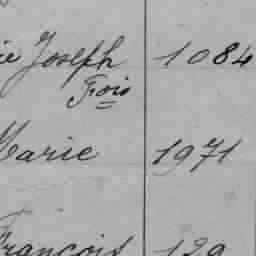 ie Joseph 1084
Fois
Marie 1971
François 129